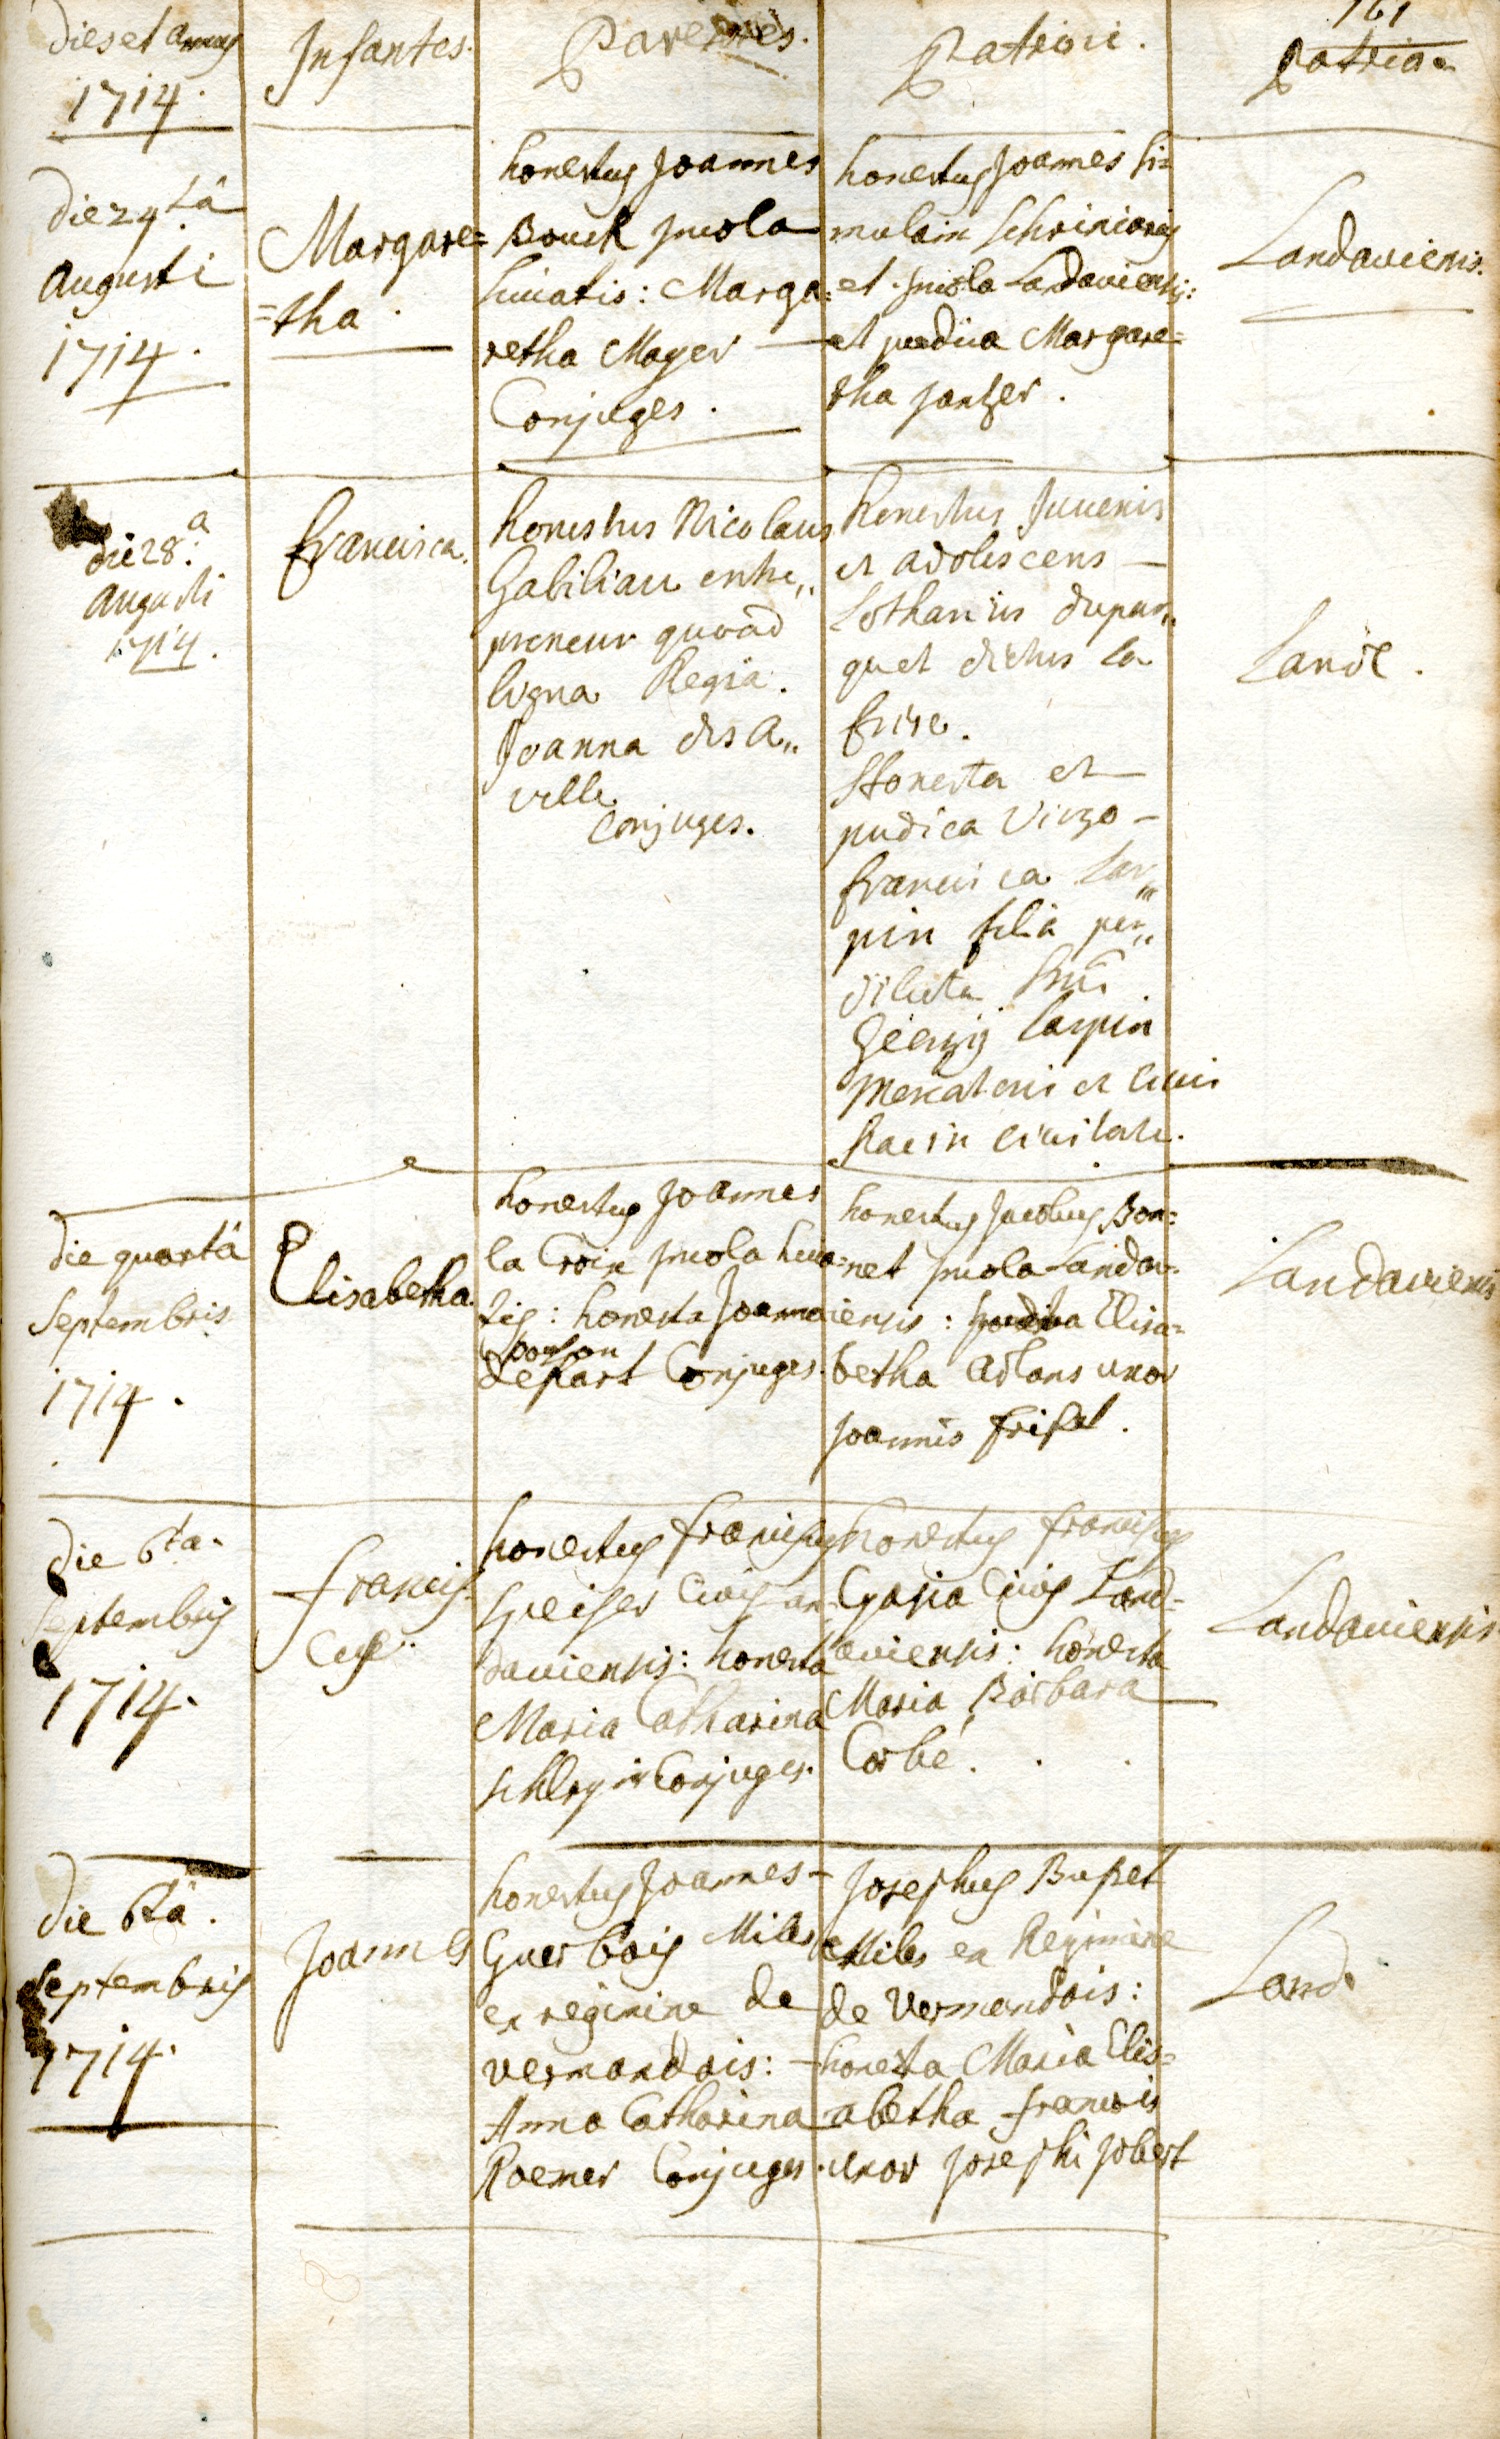 161
dies et annus
1714.
Infantes.
Parentes.
Patrini.
Patria
die 24tâ
Augusti
1714.
Margare=
=tha.
honestus Joannes
Bouck incola
huiatis: Marga=
retha Mayer
Conjuges.
honestus Joannes
Schriniarius
et incola Landaviensis:
et pudica Margare=
tha
Landaviensis.
die 28.a
Augusti
1714.
Francisca.
honestus Nicolaus
Gabiliau entre,,
preneur quoad
ligna Regia.
Joanna des a,,
ville
Conjuges.
honestus Juvenis
et adolescens
Lotharius dupar,,
quet dictus la
frise.
Honesta et
pudica Virgo
Francisca Lar,,
pin filia per,,
dilecta
Georgij Larpin
Mercatoris et Civis
hac in Civitate.
Land.
die quartâ
Septembris
1714.
Elisabetha.
honestus Joannes
la Croix incola huia=
tis: honesta Joanna
Conjuges.
honestus Jacobus Bon=
net incola Landav=
iensis: pudica Elisa=
betha Adlans uxor
Joannis
Landaviensis
die 6ta.
Septembris
1714.
Francis=
cus
honestus Franciscus
Speiser Civis Lan=
daviensis: honesta
Maria Catharina
Conjuges.
honestus Franciscus
Civis Land=
aviensis: honesta
Maria Barbara
Corbé.
Landaviensis
die 6tâ.
Septembris
1714.
Joannes
honestus Joannes
Guerbois Miles
ex regimine de
vermandois:
Anna Catharina
Roemer Conjuges.
Josephus
Miles ex Regimine
de Vermandois:
honesta Maria Elis=
abetha francois
uxor Josephi Jobert
Land.